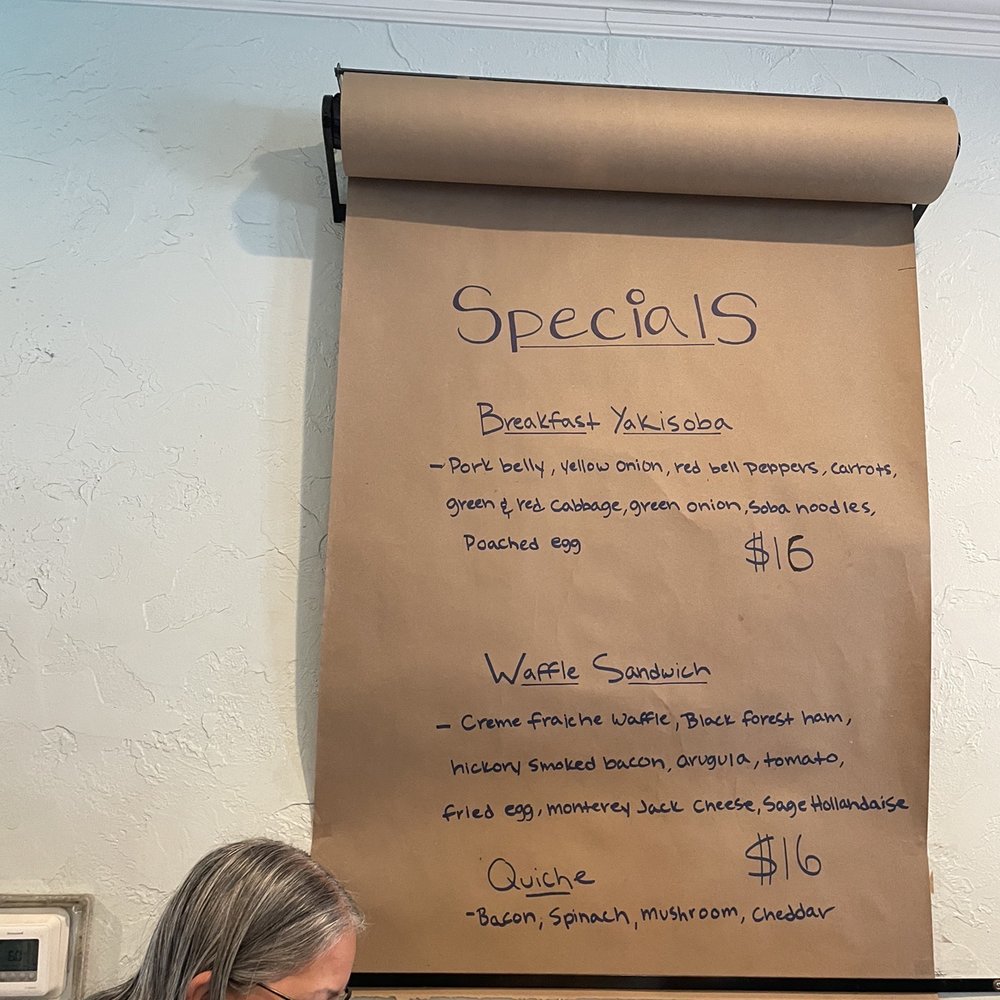 Specials
Breakfast Yakisoba
- Pork belly, yellow onion, red bell peppers, carrots,
green & red cabbage, green onion, Soba noodles,
Poached egg $16
Waffle Sandwich
- Creme fraiche waffle, Black forest ham,
hickory smoked bacon, arugula, tomato,
fried egg, monterey Jack Cheese, Sage Hollandaise
$16
Quiche
- Bacon, Spinach, mushroom, cheddar